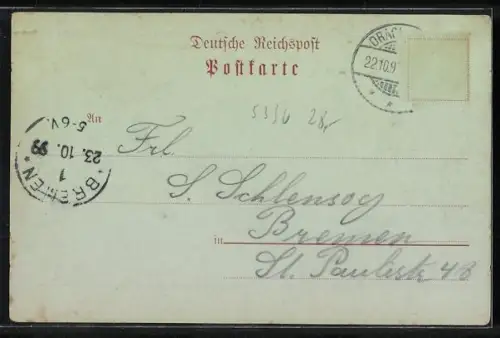 Deutsche Reichspost
Postkarte
22.10.9
5356 28,-
An
Frl.
S. Schlensog
in Bremen
St. Paulistr 48
BREMEN
1
23. 10. 99
5-6 V.